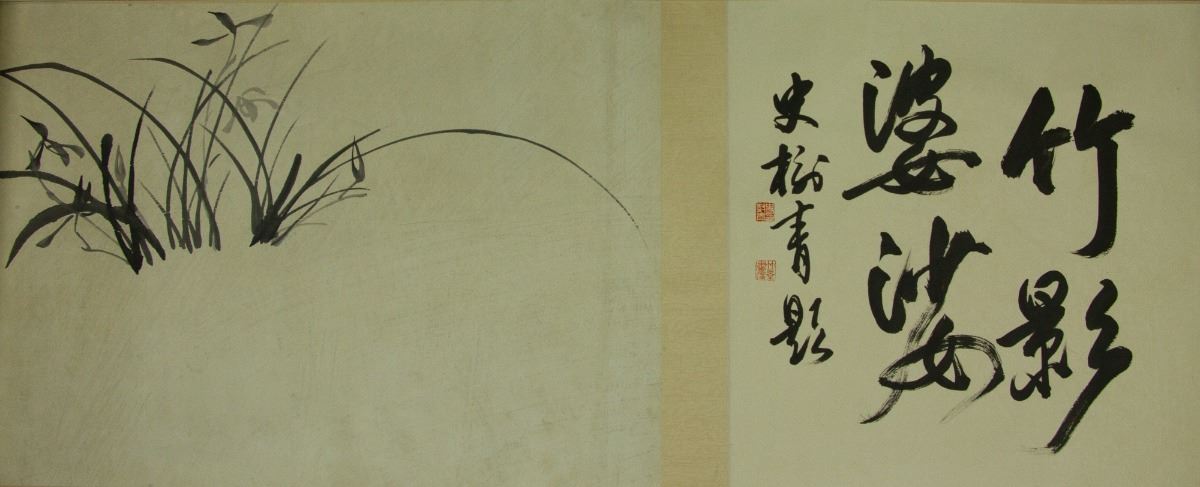 竹影
婆娑
史樹青題